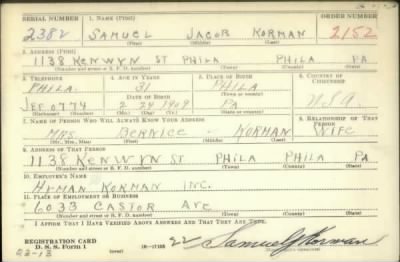 SERIAL NUMBER 1. NAME (Print) ORDER NUMBER
2382 SAMUEL JACOB KORMAN 2152
(First) (Middle) (Last)
2. ADDRESS (Print)
1138 KENWYN ST PHILA PHILA PA
(Number and street or R. F. D. number) (Town) (County) (State)
3. TELEPHONE 4. AGE IN YEARS 5. PLACE OF BIRTH 6. COUNTRY OF CITIZENSHIP
PHILA. 31 PHILA
(Town or county)
JEF 0774 2 24 1909 PA U.S.A.
(Exchange) (Number) (Mo.) (Day) (Yr.) (State or country)
7. NAME OF PERSON WHO WILL ALWAYS KNOW YOUR ADDRESS 8. RELATIONSHIP OF THAT PERSON
MRS. BERNICE - KORMAN WIFE
(Mr., Mrs., Miss) (First) (Middle) (Last)
9. ADDRESS OF THAT PERSON
1138 KENWYN ST PHILA PHILA PA
(Number and street or R. F. D. number) (Town) (County) (State)
10. EMPLOYER'S NAME
HYMAN KORMAN INC.
11. PLACE OF EMPLOYMENT OR BUSINESS
6033 CASTOR AVE
(Number and street or R. F. D. number) (Town) (County) (State)
I AFFIRM THAT I HAVE VERIFIED ABOVE ANSWERS AND THAT THEY ARE TRUE.
REGISTRATION CARD
D. S. S. Form 1 (over) 16-17105 22 Samuel J Korman
22-13